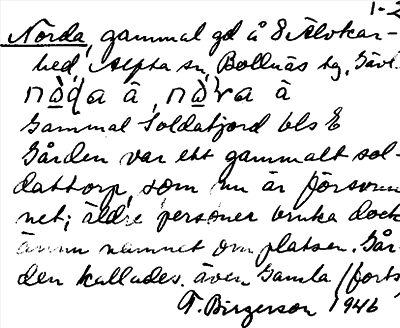 1-2
Norda, gammal gd å S Älvkar-
hed, Alfta sn, Bollnäs tg, Gävl.
Gammal Soldatjord bls E
Gården var ett gammalt sol-
dattorp, som nu är försvun
net; äldre personer bruka dock
ännu namnet om platsen. Går-
den kallades även Gamla (forts
F. Birgerson 1946